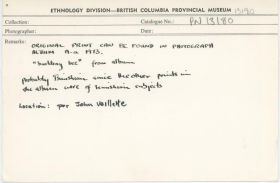 ETHNOLOGY DIVISION—BRITISH COLUMBIA PROVINCIAL MUSEUM 13180
Collection: Catalogue No.: PN 13180
Photographer: Date:
Remarks:
ORIGINAL PRINT CAN BE FOUND IN PHOTOGRAPH
ALBUM 9-a 1973.
" bee" from album
probably Tsimshian since the other prints in
the album were of Tsimshian subjects
Location: per John Veillette